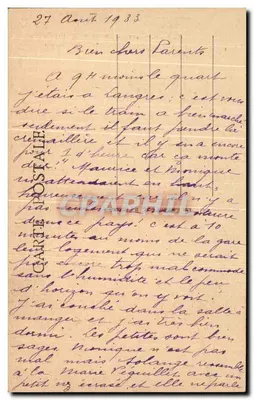 27 Août 1933
Bien chers Parents
A 9H moins le quart
j'étais à Langres, c'est vous
dire si le train a bien marché
seulement il faut prendre la
crémaillère et il y en a encore
pour 1/2 heure car ça monte
dur Maurice et Monique
m'attendaient en haut
j'y a
pas
dans ce pays. c'est à 10
minutes au moins de la gare
leur logement qui ne serait
pas encore trop mal commode
sans l'humidité et le peu
d'horizon qu'on y voit.
j'ai couché dans la salle à
manger et j'ai très bien
dormi. Les petites sont bien
sages Monique n'est pas
mal mais Solange ressemble
à la Marie Peguillet avec un
petit nez écrasé et elle ne parle
CARTE POSTALE
CPAPHIL